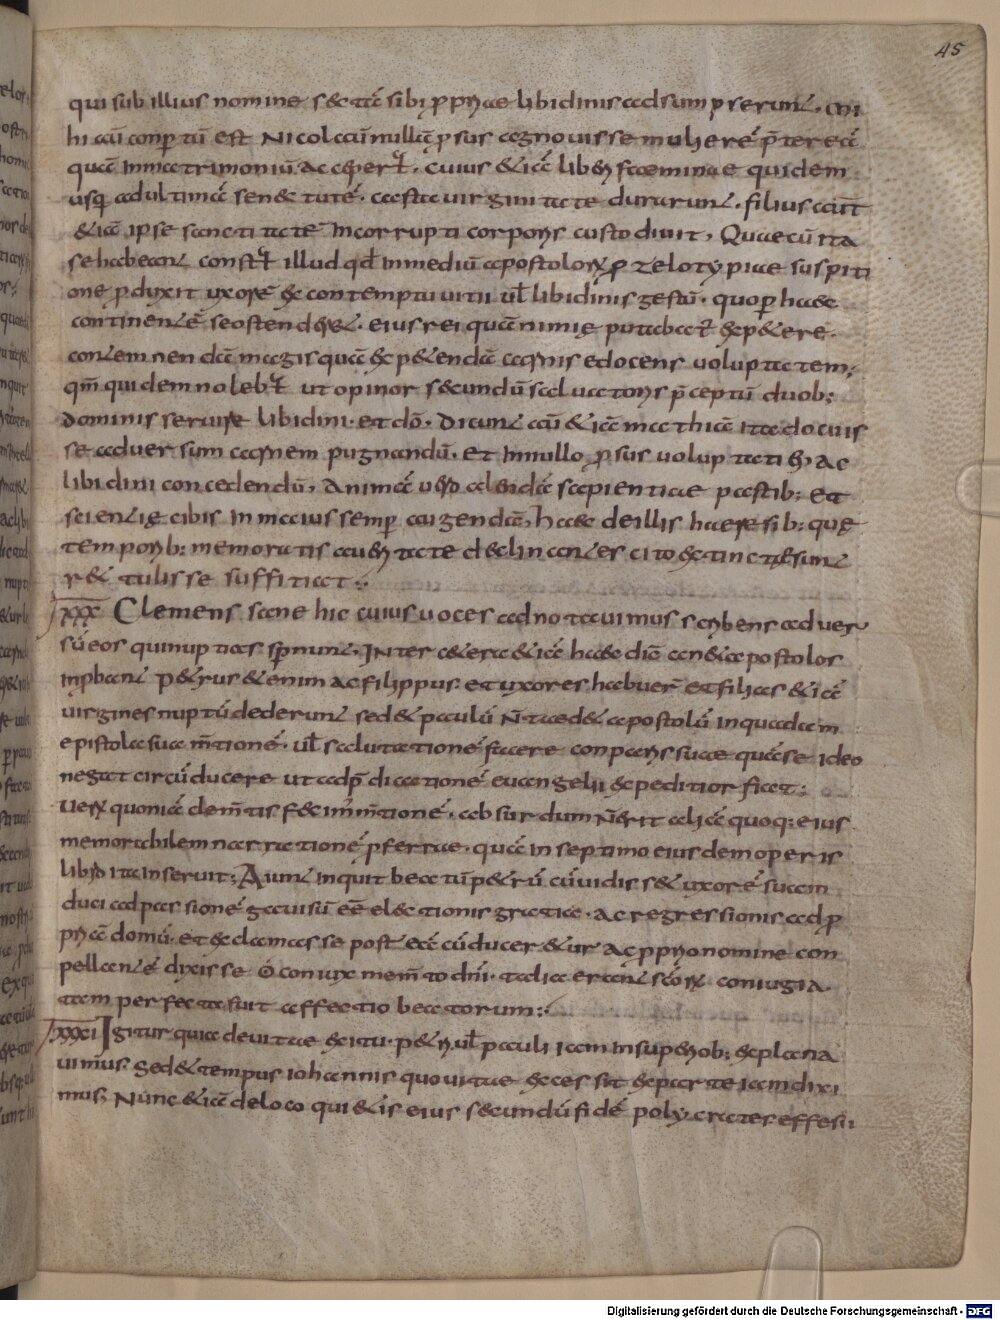 45
qui sub illius nomine sectā sibi ꝓpriae libidinis adsumpserunt. mi
hi aūt conptū est Nicolaū nullā ꝓsus agnouisse mulierē p̄ter eā
quā in matrimoniū acceperat. cuius & iā liberi faeminae quidem
usq; ad ultimā senectutē. casta uirginitate durarunt. filius aūt
& iā ipse sanctitatē incorrupti corporis custodiuit, Quae cū ita
se habeant constat illud qd̄ in mediū apostolorū ꝓ zelotypiae suspiti
one ꝓduxit uxorē & contemptu uitii ul̄ libidinis gestū. quo per haec
continentē se ostenderet. eius rei quā nimię putabat' expetere.
contemnendā magis quā expetendā carnis edocens uoluptatem;
qm̄ quidem nolebat ut opinor secundū saluatoris p̄ceptū duob;
dominis seruire libidini. et dō. Dicunt aūt & iā mathiā ita docuis
se aduersum carnem pugnandū. et in nullo ꝓsus uoluptati ei ac
libidini concedendū, animā uero alendā sapientiae pastib; et
scientię cibis in maius semper augendā, haec de illis haeresib; quę
temporib; memoratis a ueritate declinantes cito extinctae sunt
r& tulisse sufficiat:
XXX Clemens sane hic cuius uoces adnotauimus scribens aduer
sū eos qui nuptias spernunt. Inter cetera & iā haec dic̄ an & apostolos
inprobant petrus & enim ac filippus. et uxores habuer̄ et filias & iā
uirgines nuptū dederunt sed & paulū n̄ taed& apostolū in quadam
epistola sua m̄tionē. ul̄ salutationē facere conparis suae quā se ideo
negat circūducere ut ad p̄dicationē euangelii expeditior fiat:
Uerū quoniā clem̄tis fecim' m̄tionē. absurdum n̄ erit aliā quoq; eius
memorabilem narrationē ꝓferrae. quā in septimo eiusdem operis
libro ita inseruit; Aiunt inquit beatū petrū cū uidiss& uxorē suam
duci ad passionē gauisū eē electionis gratia. ac regressionis ad ꝓ
priā domū. et exclamasse post eā cū duceretur ac ꝓprio nomine con
pellantē dixisse o coniux mem̄to dn̄i. talia erant scōrū coniugia.
tam perfecta fuit affectio beatorum:
XXXI Igitur quia de uitae exitu. petri ul̄ pauli iam in superiorib; explana
uimus. Sed & tempus iohannis quo uitae excessit exparte iam dixi
mus. Nunc & iā de loco quietis eius secundū fidē polycrates effesi:
Digitalisierung gefördert durch die Deutsche Forschungsgemeinschaft - DFG